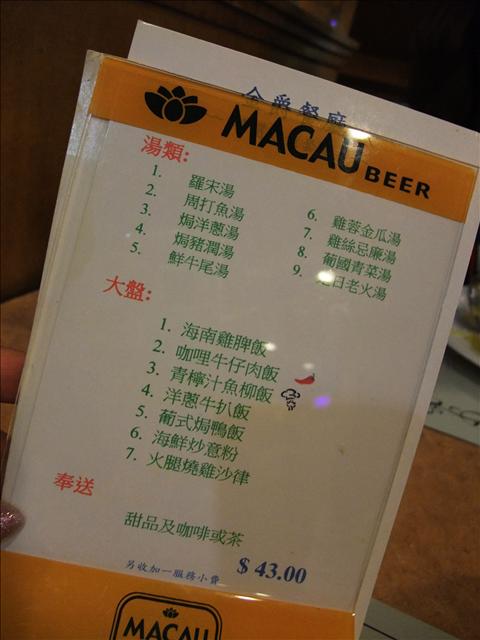 金爵餐廳
MACAU BEER
湯類:
1. 羅宋湯
2. 周打魚湯
3. 焗洋蔥湯
4. 焗豬潤湯
5. 鮮牛尾湯
6. 雞蓉金瓜湯
7. 雞絲忌廉湯
8. 葡國青菜湯
9. 是日老火湯
大盤:
1. 海南雞脾飯
2. 咖哩牛仔肉飯
3. 青檸汁魚柳飯
4. 洋蔥牛扒飯
5. 葡式焗鴨飯
6. 海鮮炒意粉
7. 火腿燒雞沙律
奉送
甜品及咖啡或茶
另收加一服務小費 $ 43.00
MACAU